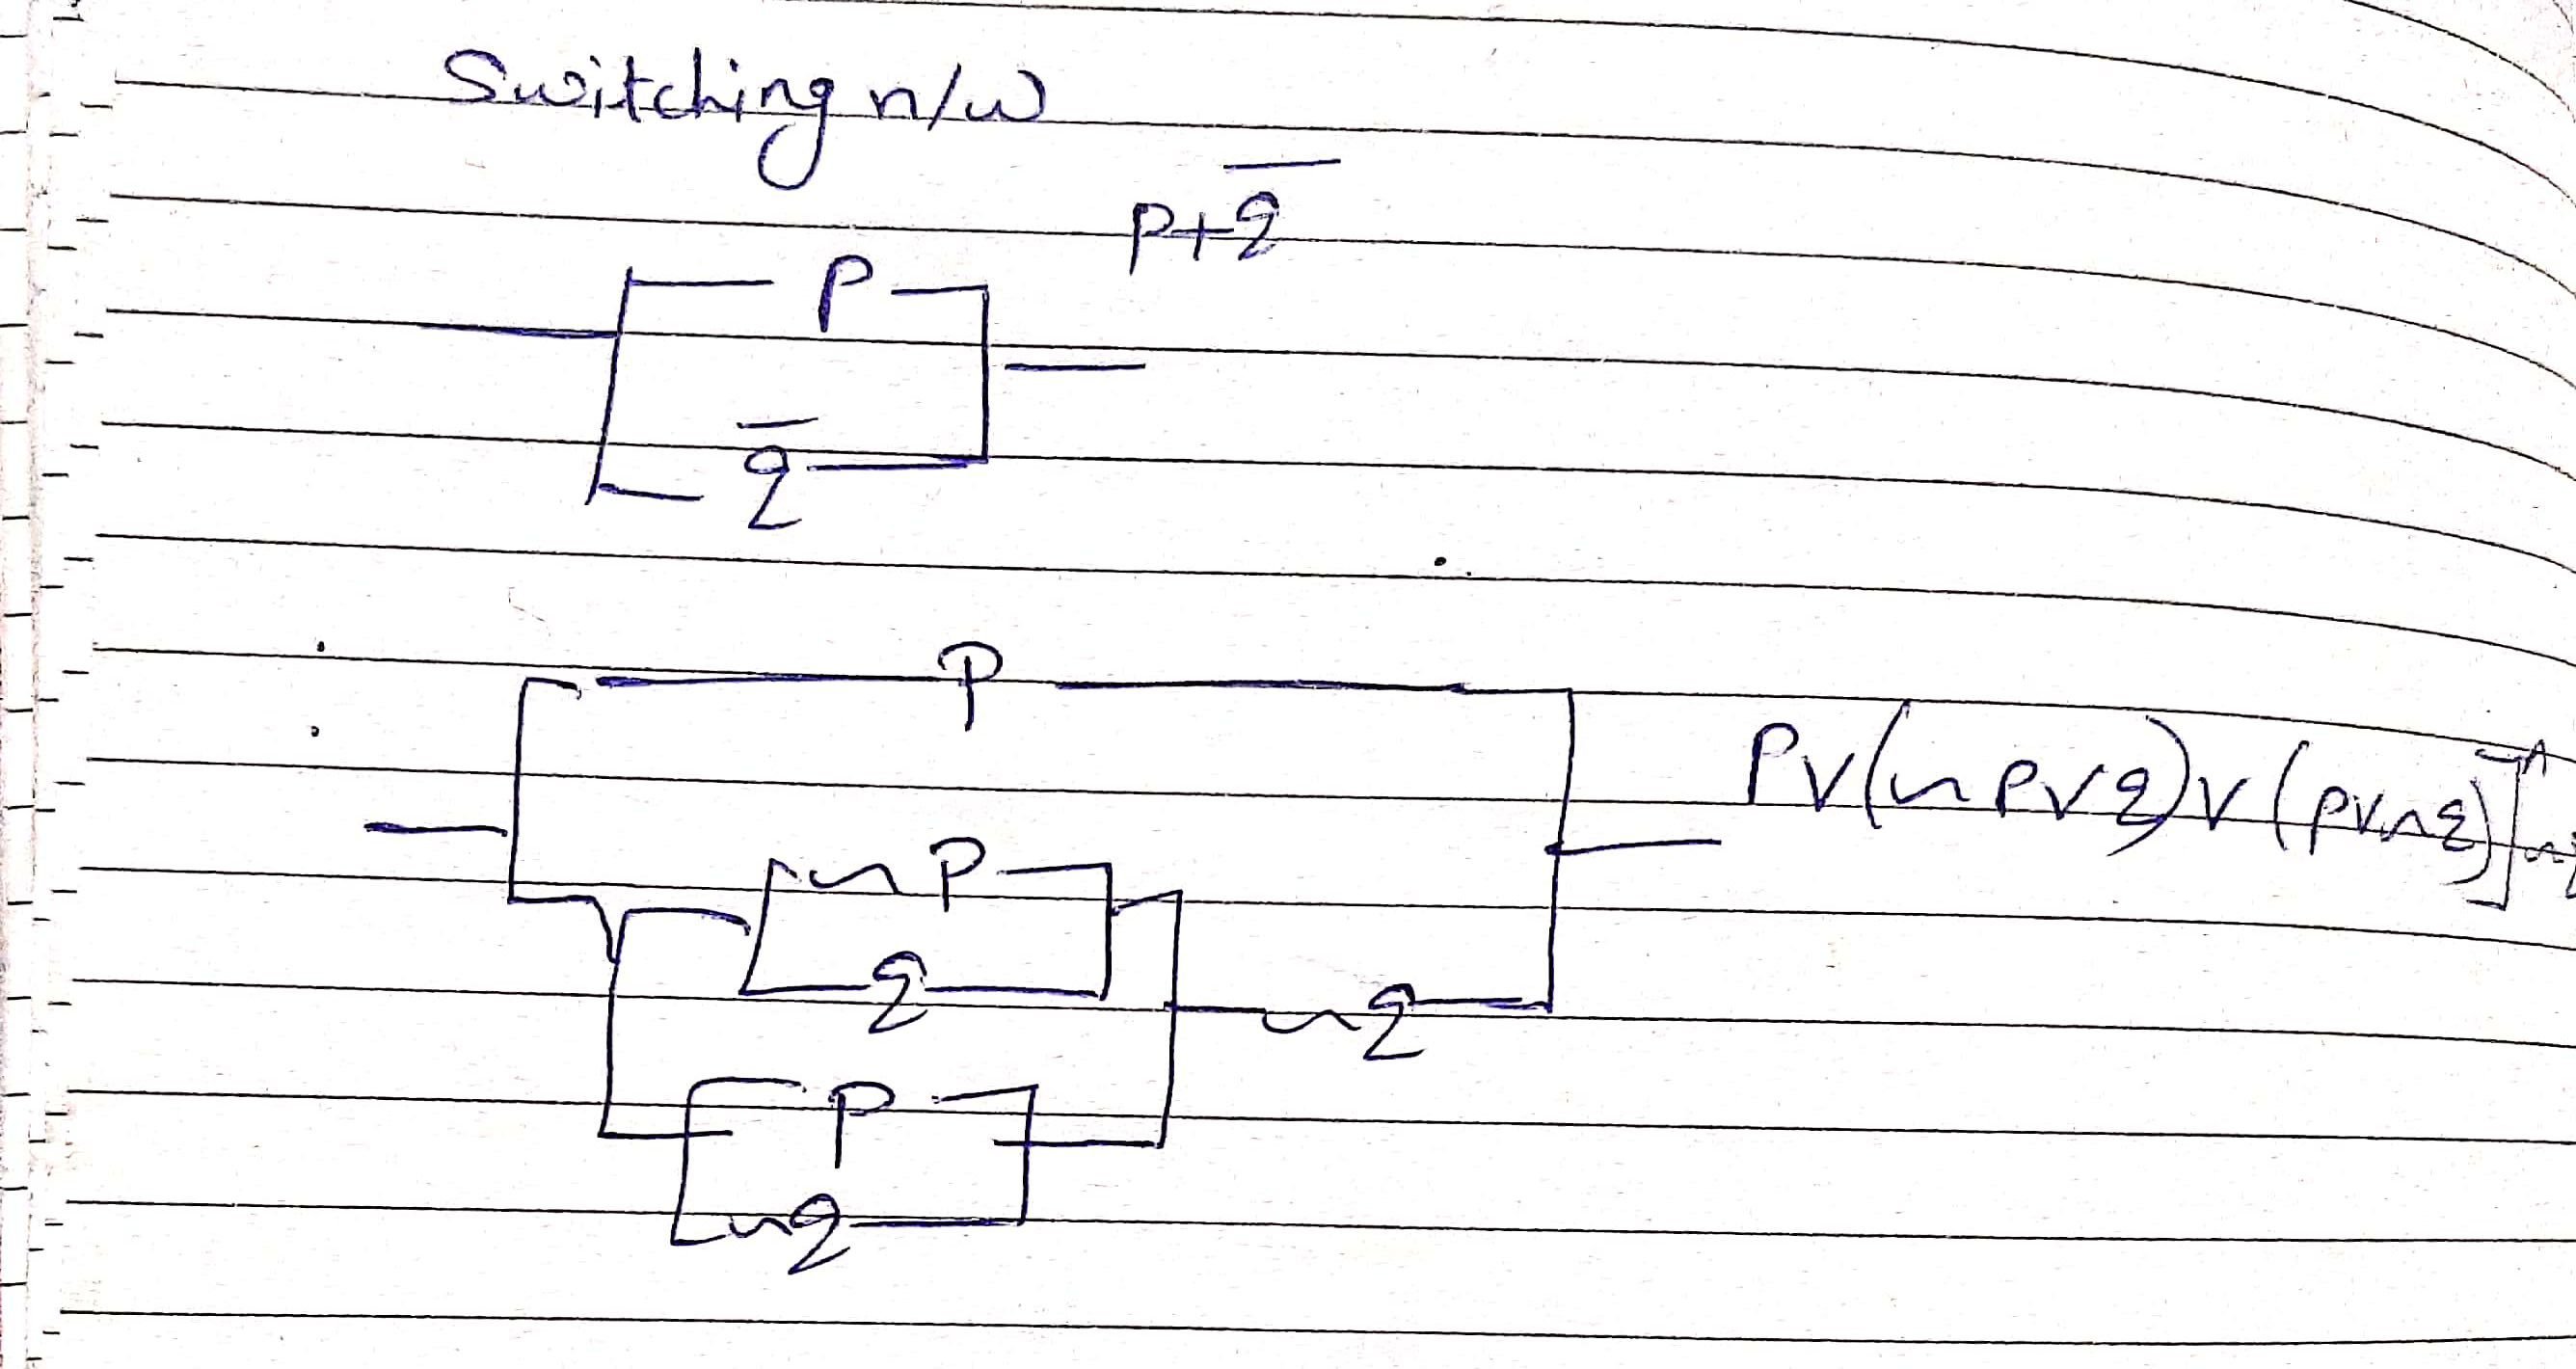 Switching n/w
p+q̅
P
q̅
P
Pv(~pvq)v(pv~q)]^
~P
q
~q
P
~q